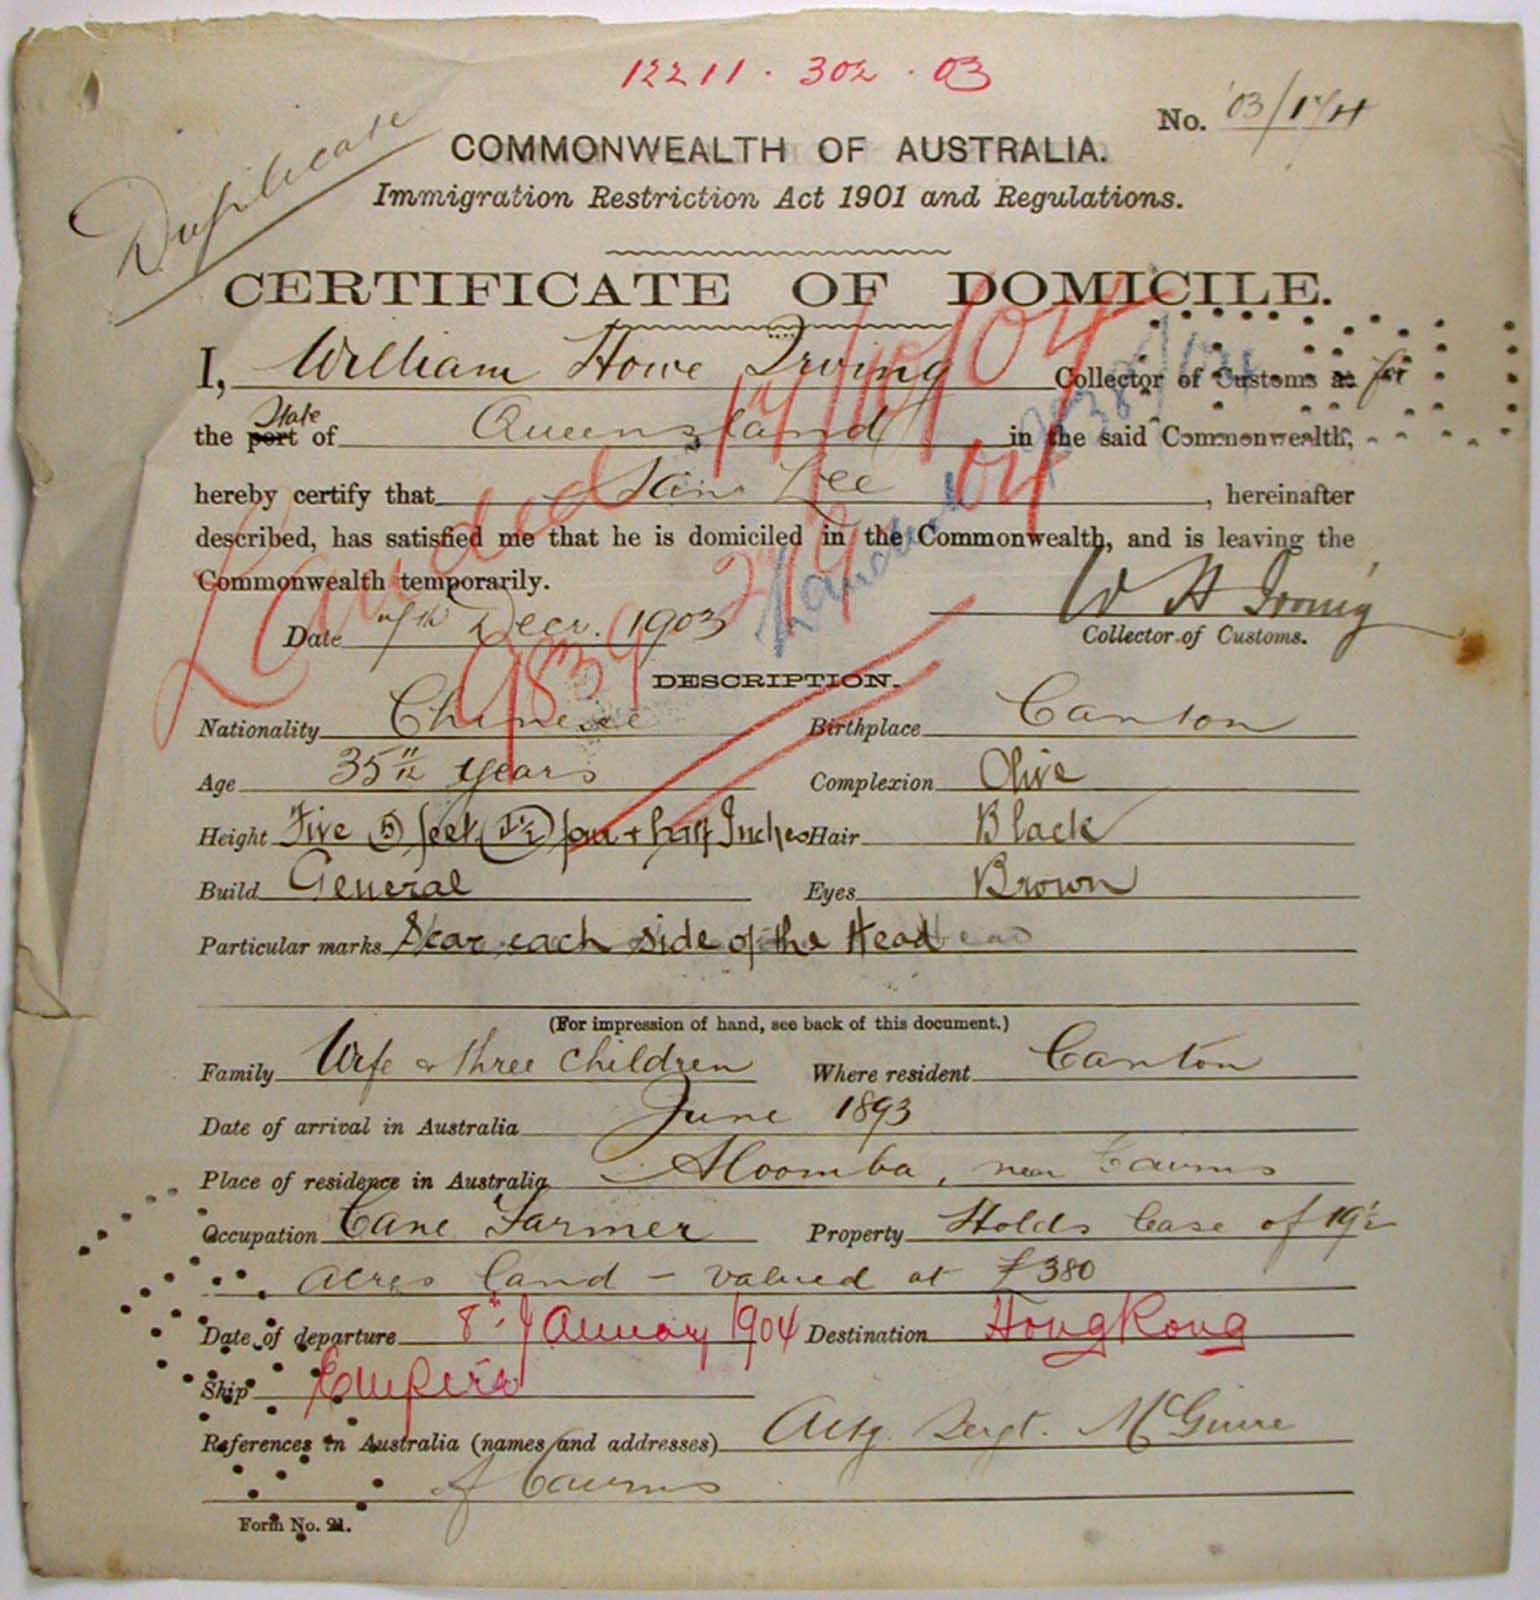 12211 . 302 . 03
No. 03/174
Duplicate
COMMONWEALTH OF AUSTRALIA.
Immigration Restriction Act 1901 and Regulations.
CERTIFICATE OF DOMICILE.
I, William Howe Irving Collector of Customs at for
the port State of Queensland in the said Commonwealth,
hereby certify that Lee, hereinafter
described, has satisfied me that he is domiciled in the Commonwealth, and is leaving the
Commonwealth temporarily.
Landed
14/10/04
Landed
W H Irving
Date Decr. 1903 Collector of Customs.
DESCRIPTION.
Nationality Chinese Birthplace Canton
Age 35 years Complexion Olive
Height Five (5) feet (4½) four & half Inches Hair Black
Build General Eyes Brown
Particular marks Scar each side of the Head
(For impression of hand, see back of this document.)
Family Wife & three children Where resident Canton
Date of arrival in Australia June 1893
Place of residence in Australia Aloomba, near Cairns
Occupation Cane Farmer Property Holds lease of 19½
acres land - valued at £380
Date of departure 8th January 1904 Destination HongKong
Ship Empire
References in Australia (names and addresses) Actg. Sergt. McGuire
of Cairns
Form No. 21.